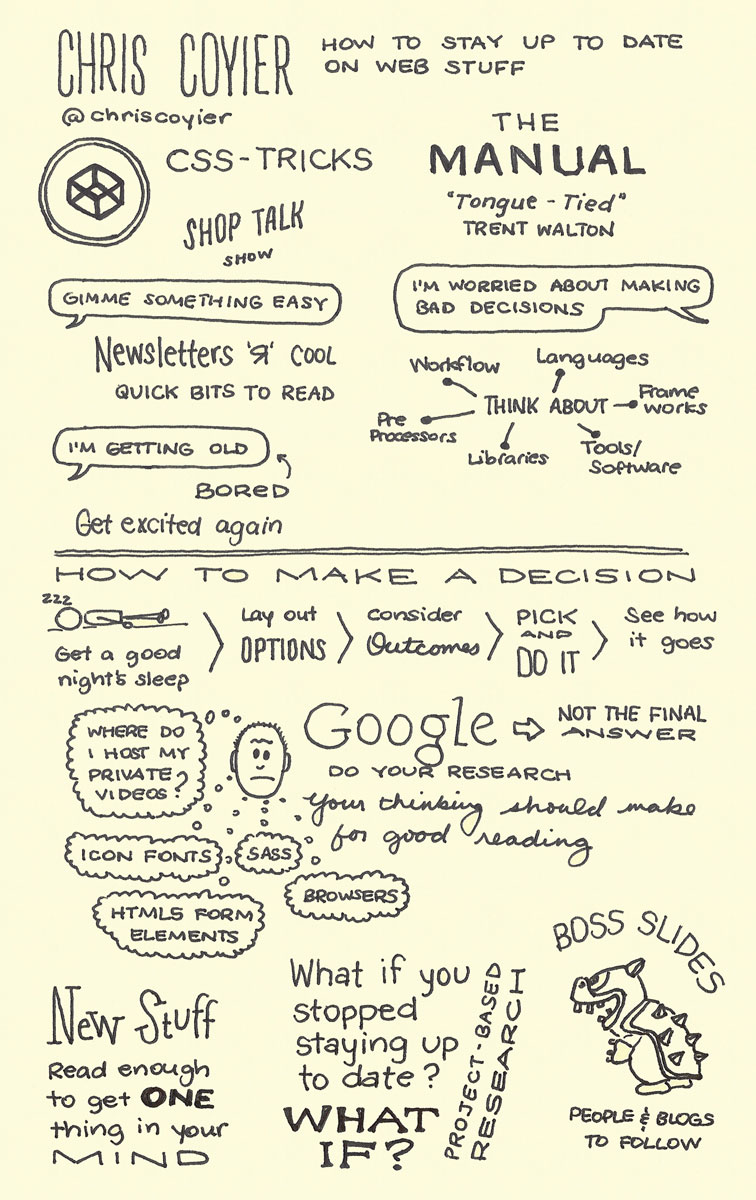 CHRIS COYIER
HOW TO STAY UP TO DATE
ON WEB STUFF
@chriscoyier
CSS-TRICKS
SHOP TALK
SHOW
THE
MANUAL
"Tongue - Tied"
TRENT WALTON
GIMME SOMETHING EASY
Newsletters 'Я' COOL
QUICK BITS TO READ
I'M GETTING OLD
BORED
Get excited again
I'M WORRIED ABOUT MAKING
BAD DECISIONS
Workflow
Languages
THINK ABOUT
Frame
works
Pre
Processors
Libraries
Tools/
Software
HOW TO MAKE A DECISION
zzz
Get a good
night's sleep
Lay out
OPTIONS
consider
Outcomes
PICK
AND
DO IT
See how
it goes
WHERE DO
I HOST MY
PRIVATE
VIDEOS?
ICON FONTS
SASS
BROWSERS
HTML5 FORM
ELEMENTS
Google
NOT THE FINAL
ANSWER
DO YOUR RESEARCH
Your thinking should make
for good reading
New Stuff
Read enough
to get ONE
thing in your
MIND
What if you
stopped
staying up
to date?
WHAT
IF?
PROJECT-BASED
RESEARCH
BOSS SLIDES
PEOPLE & BLOGS
TO FOLLOW